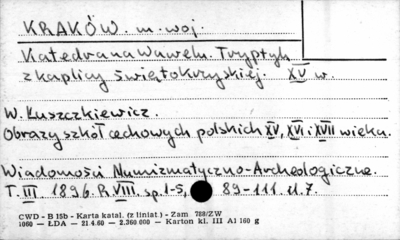 KRAKÓW. m. woj.
Katedra na Wawelu. Tryptyk
z kaplicy świętokrzyskiej. XV w.
W. Łuszczkiewicz.
Obrazy szkół cechowych polskich XV, XVI i XVII wieku.
Wiadomości Numizmatyczno-Archeologiczne.
T. III. 1896. R. VIII. sp. 1-5, 89-111. il. 7.
CWD - B 15b - Karta katal. (z liniat.) - Zam 788/ZW
1060 - ŁDA - 21.4.60 - 2.360.000 - Karton kl. III A1 160 g